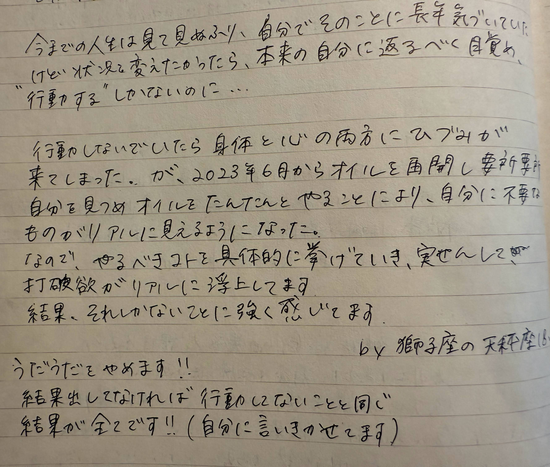 今までの人生は見て見ぬふり、自分でそのことに長年気づいていた
けど状況を変えたかったら、本来の自分に返るべく目覚め、
"行動する"しかないのに…
行動しないでいたら身体と心の両方にひづみが
来てしまった。が、2023年6月からオイルを再開し要所要所
自分を見つめオイルをたんたんとやることにより、自分に不要な
ものがリアルに見えるようになった。
なので、やるべきコトを具体的に挙げていき、実せんして
打破欲がリアルに浮上してます
結果、それしかないことに強く感じてます
by 獅子座の天秤座
うだうだをやめます!!
結果出してなければ行動してないことと同じ
結果が全てです!!(自分に言いきかせてます)